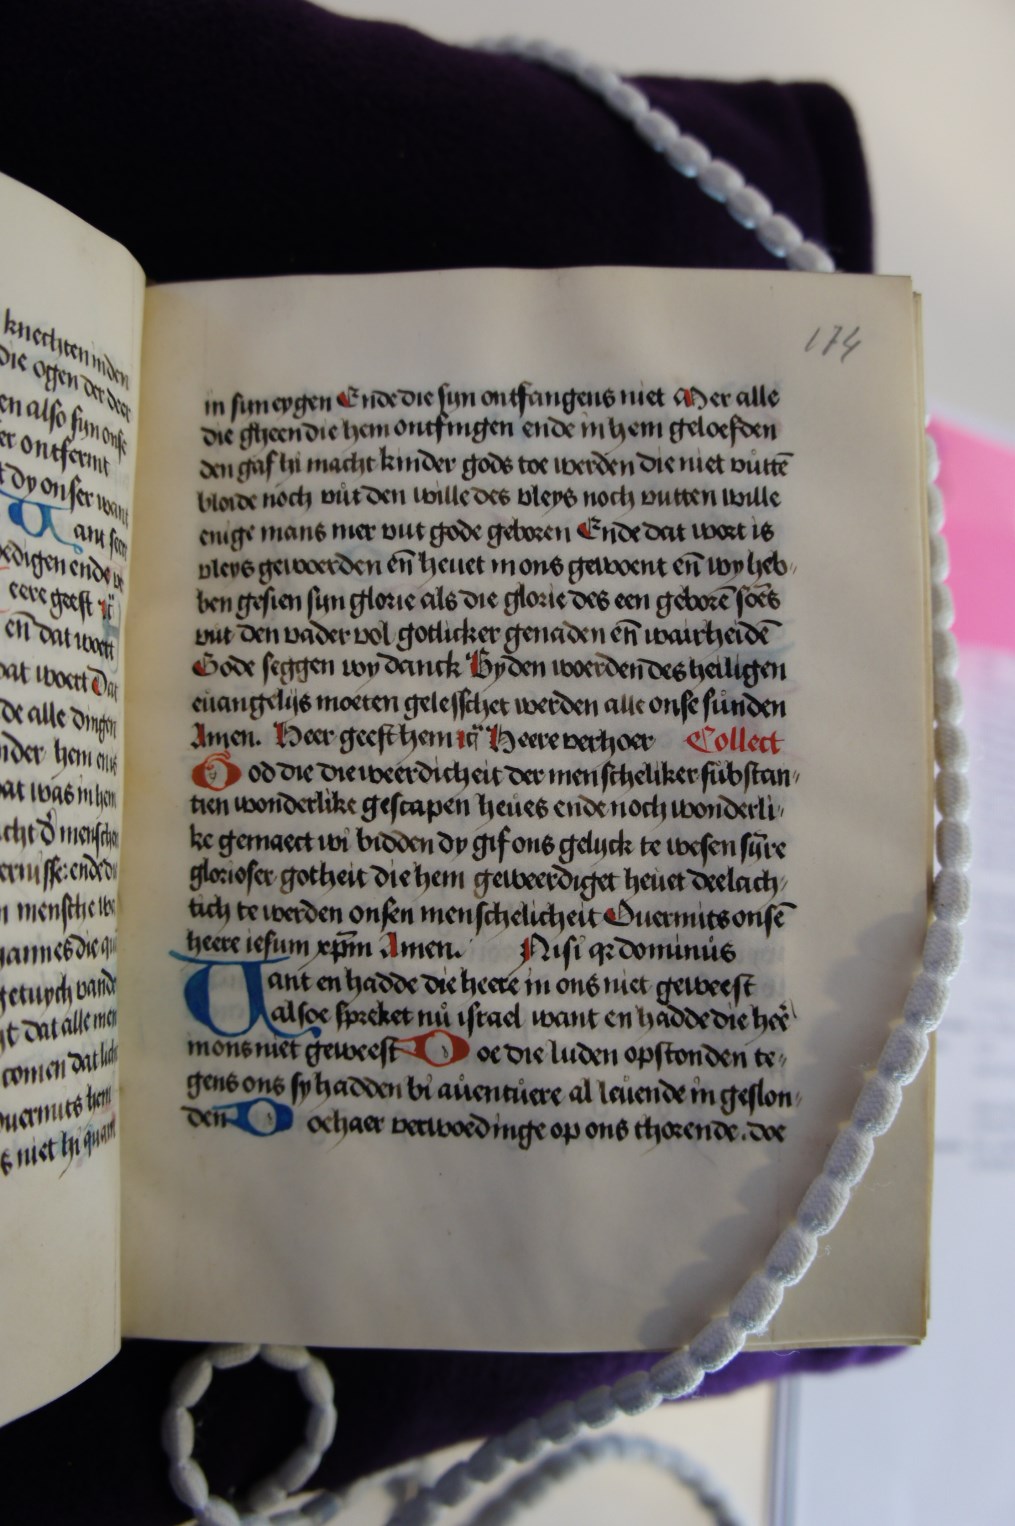 knechten in den
die ogen der deer
en also syn onse
er ontfermt
t dy onser want
ant seer
edigen ende ve
eere geest
en̄ dat woert
at woert Dat
de alle dingen
nder hem enis
at was in hem
cht d̕ mensche
ernisse: ende du
n mensche we
annes die qua
getuych vande
gt dat alle men
comen dat licht
ouermits hem
s niet hi quam
174
in syn eygen Ende die syn ontfangens niet Mer alle
die gheen die hem ontfingen ende in hem geloefden
den gaf hi macht kinder gods toe werden die niet vuttē
bloide noch vut den wille des vleys noch vutten wille
enige mans mer vut gode geboren Ende dat wort is
vleys gewoerden en̄ heuet in ons gewoent en̄ wy heb-
ben gesien syn glorie als die glorie des een geborē soēs
vut den vader vol gotlicker genaden en̄ wairheidē
Gode seggen wy danck By den woerden des heiligen
euangelijs moeten gelesschet werden alle onse sunden
Amen. Heer geest hem Heere verhoer Collect
God die die weerdicheit der menscheliker substan-
tien wonderlike gescapen heues ende noch wonderli-
ke gemaect wi bidden dy gif ons gelyck te wesen synre
glorioser gotheit die hem geweerdiget heuet deelach-
tich te werden onsen menschelicheit Ouermits onsē
heere iesum xp̄m Amen. Nisi qr dominus
Want en hadde die heere in ons niet geweest
alsoe spreket nu israel want en hadde die hee᷑
in ons niet geweest Doe die luden opstonden te-
gens ons sy hadden bi auentuere al leuende in geslon-
den Doe haer verwoedinge op ons thorende. doe